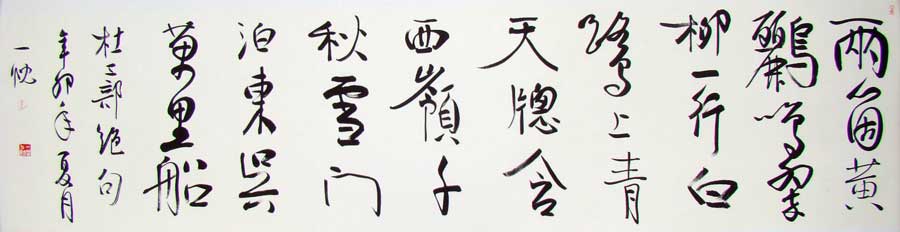 兩箇黃
鸝鳴翠
柳一行白
鷺上青
天牕含
西嶺千
秋雪门
泊東吳
萬里船
杜工部絕句
辛卯年夏月
一